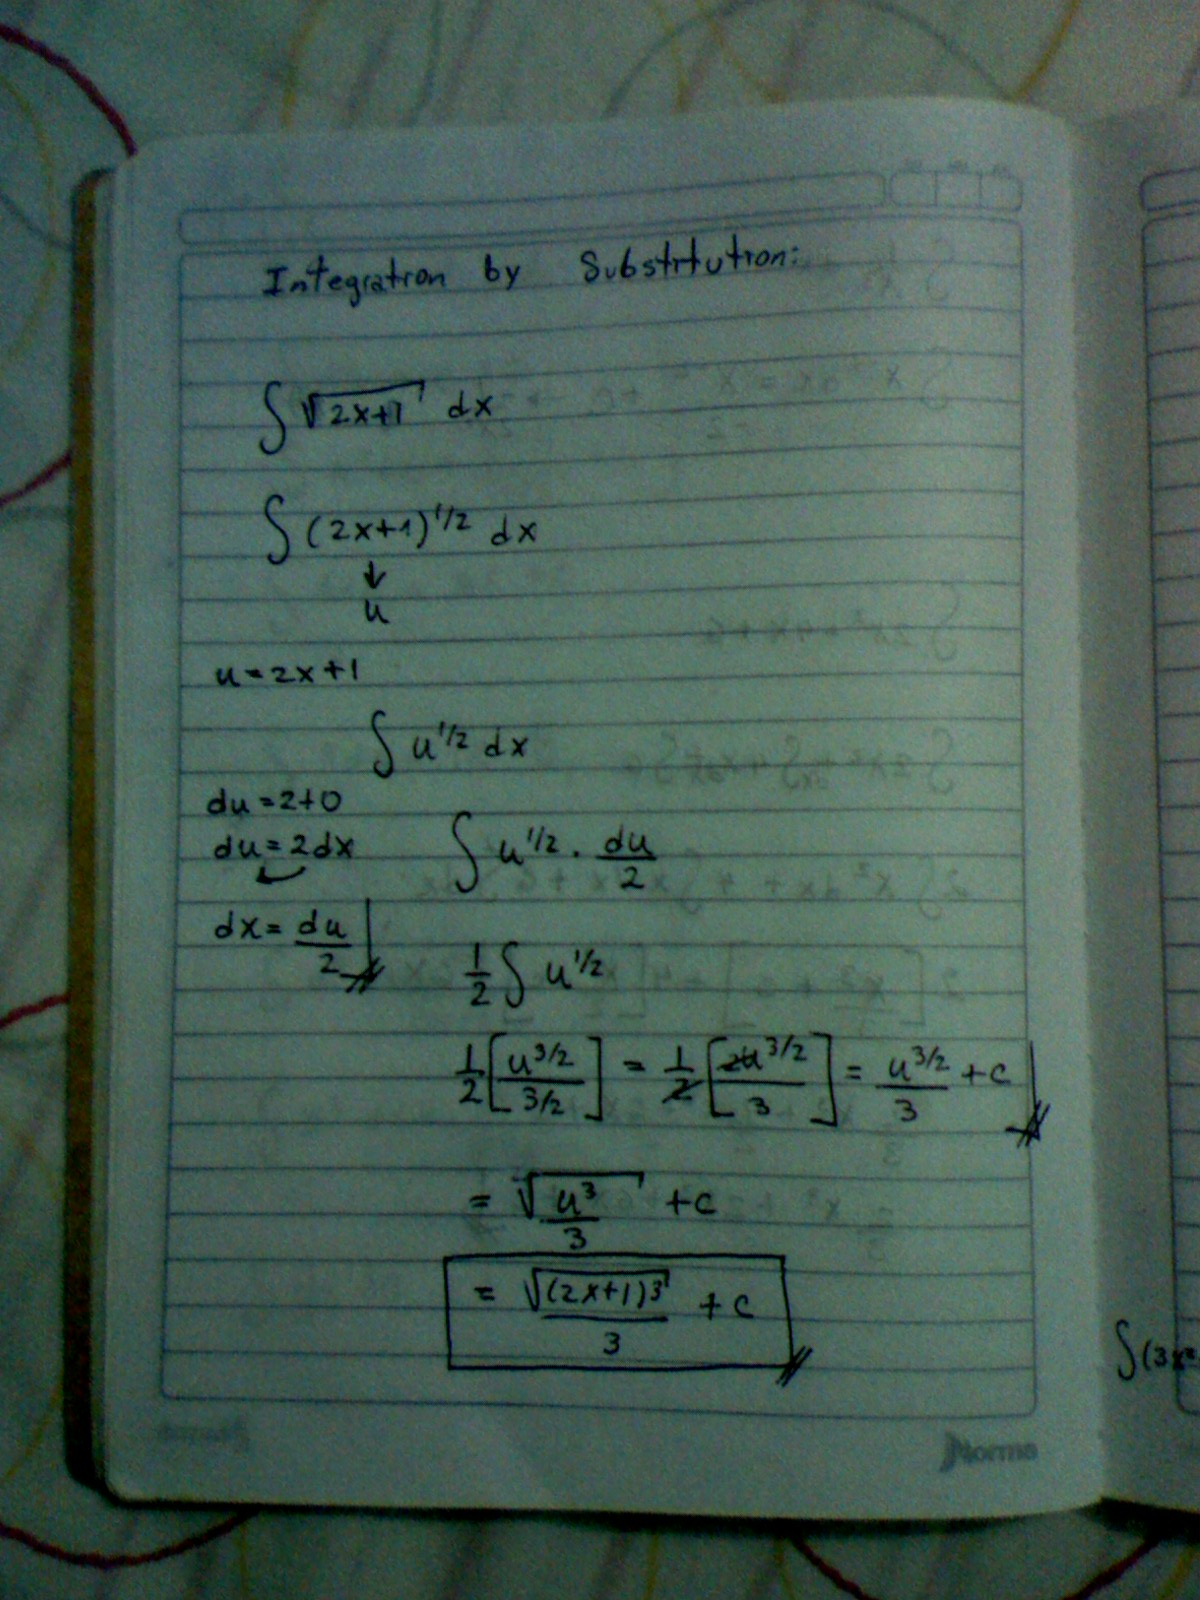 Integration by Substitution:
∫ √(2x+1) dx
∫ (2x+1)^1/2 dx
↓
u
u = 2x+1
∫ u^1/2 dx
du = 2+0
du = 2dx
∫ u^1/2 · du/2
dx = du/2
1/2 ∫ u^1/2
1/2 [u^3/2 / 3/2] = 1/2 [2u^3/2 / 3] = u^3/2 / 3 + c
= √u^3 / 3 + c
= √(2x+1)^3 / 3 + c
∫(3x²
Norma